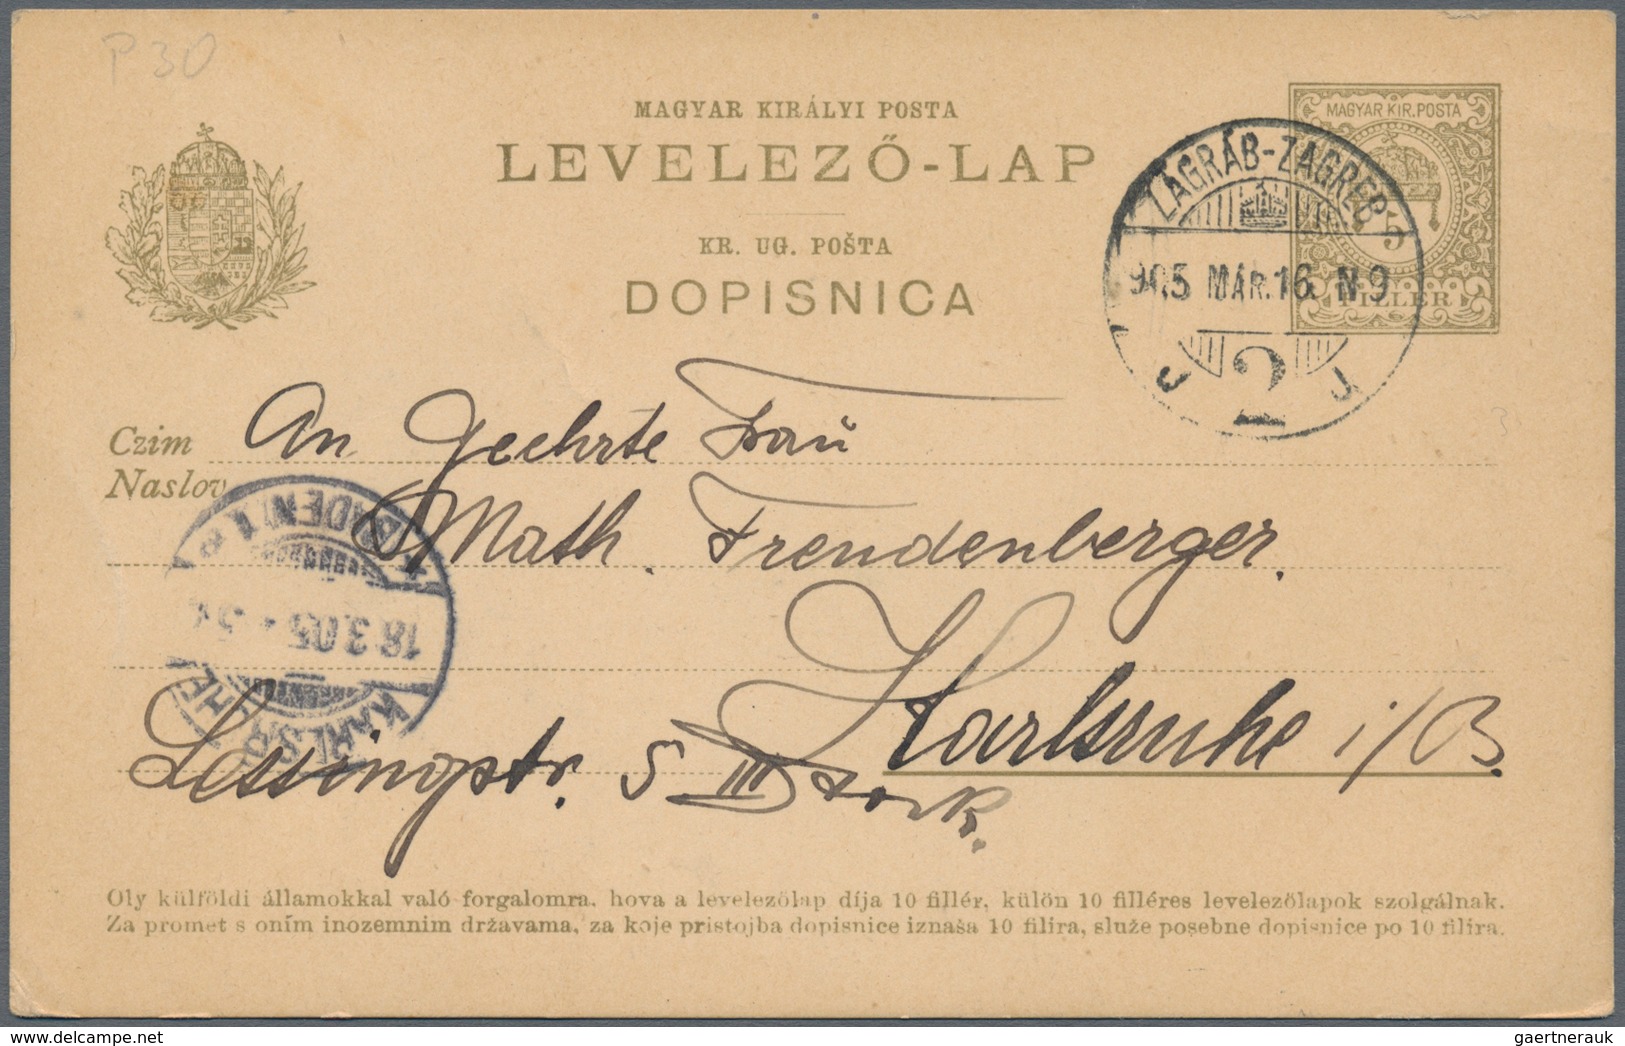 P 30
MAGYAR KIRÁLYI POSTA
LEVELEZŐ-LAP
KR. UG. POŠTA
DOPISNICA
MAGYAR KIR. POSTA
5
FILLER
ZÁGRÁB-ZAGREB
905 MÁR. 16. N 9
2
Czim An Geehrte Frau
Naslov Math. Freudenberger.
KARLSRUHE (BADEN) 1
18.3.05
Karlsruhe i/B.
Lessingstr. 5 III Stock.
3
Oly külföldi államokkal való forgalomra, hova a levelezőlap díja 10 fillér, külön 10 filléres levelezőlapok szolgálnak.
Za promet s oním inozemnim državama, za koje pristojba dopisnice iznaša 10 filira, služe posebne dopisnice po 10 filira.
gaertnerauk